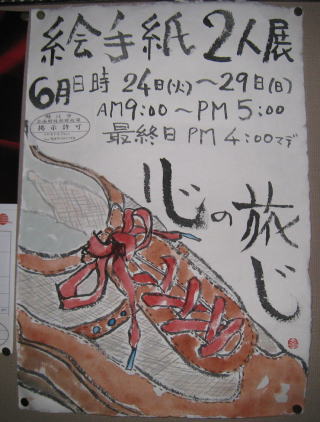 絵手紙 2人展
6月 日時 24日(火)～29日(日)
AM9:00～PM5:00
最終日 PM 4:00マデ
掲示許可
心の旅じ